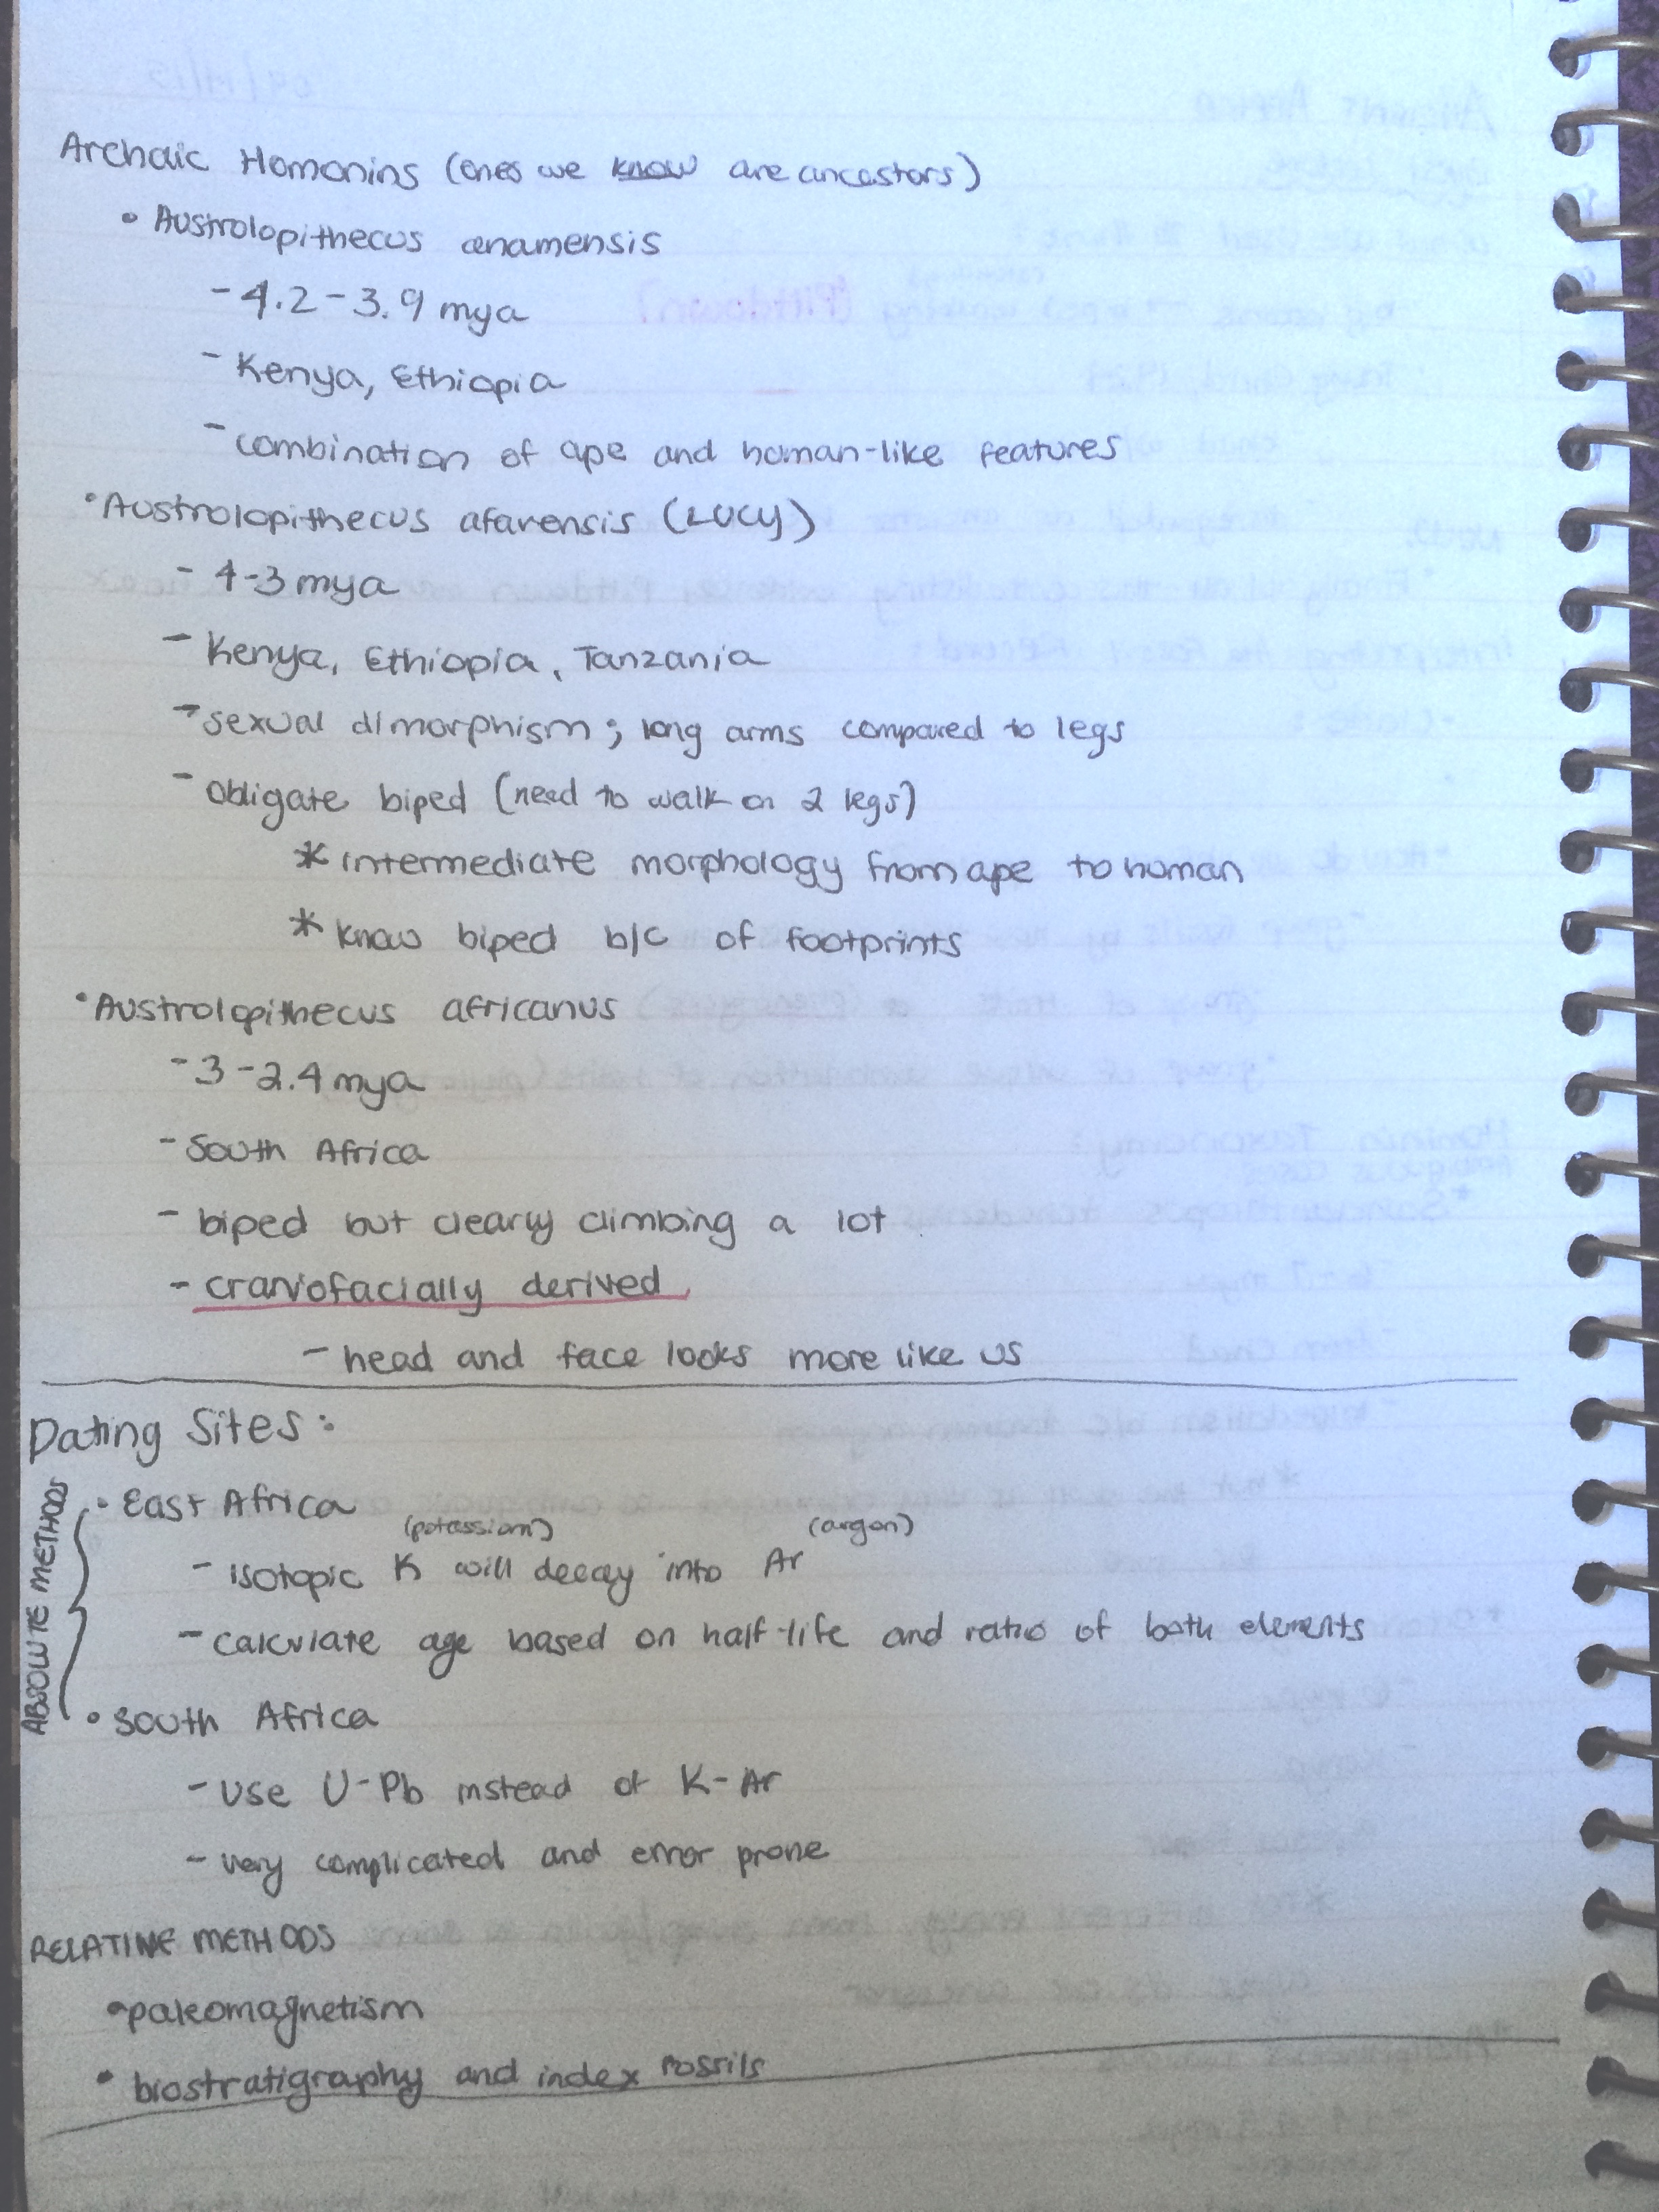 Archaic Homonins (ones we know are ancestors)
• Austrolopithecus anamensis
- 4.2 - 3.9 mya
- Kenya, Ethiopia
- combination of ape and human-like features
• Austrolopithecus afarensis (LUCY)
- 4-3 mya
- Kenya, Ethiopia, Tanzania
- sexual dimorphism; long arms compared to legs
- obligate biped (need to walk on 2 legs)
* intermediate morphology from ape to human
* know biped b/c of footprints
• Austrolopithecus africanus
- 3 - 2.4 mya
- South Africa
- biped but clearly climbing a lot
- craniofacially derived
- head and face looks more like us
Dating Sites:
ABSOLUTE METHODS
• East Africa
(potassium) (argon)
- isotopic K will decay into Ar
- calculate age based on half-life and ratio of both elements
• South Africa
- Use U-Pb instead of K-Ar
- very complicated and error prone
RELATIVE METHODS
• paleomagnetism
• biostratigraphy and index fossils